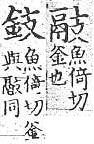 䰙魚倚切
釜也
鈘魚倚切釜
與同